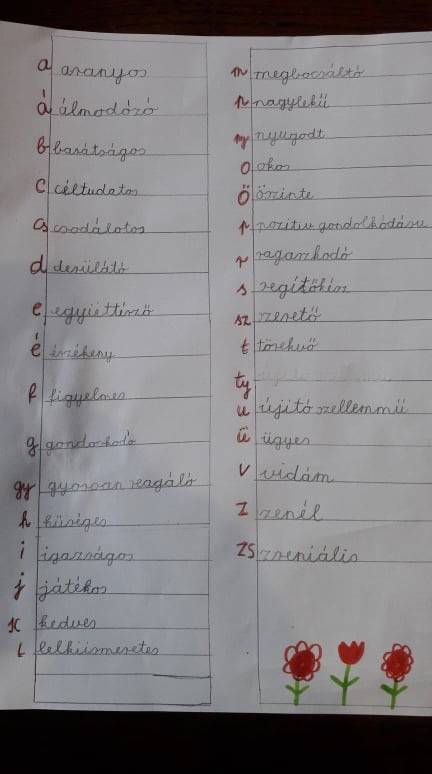 a aranyos
á álmodózó
b barátságos
c céltudatos
cs csodálatos
d derűlátó
e együttérző
é érzékeny
f figyelmes
g gondoskodó
gy gyorsan reagáló
h hűséges
i igazságos
j játékos
k kedves
l lelkiismeretes
m megbocsájtó
n nagylelkű
ny nyugodt
o okos
ö őszinte
p pozitiv gondolkodású
r ragaszkodó
s segítőkész
sz szerető
t törekvő
ty
u újító szellemmű
ü ügyes
v vidám
z zenél
zs zseniális